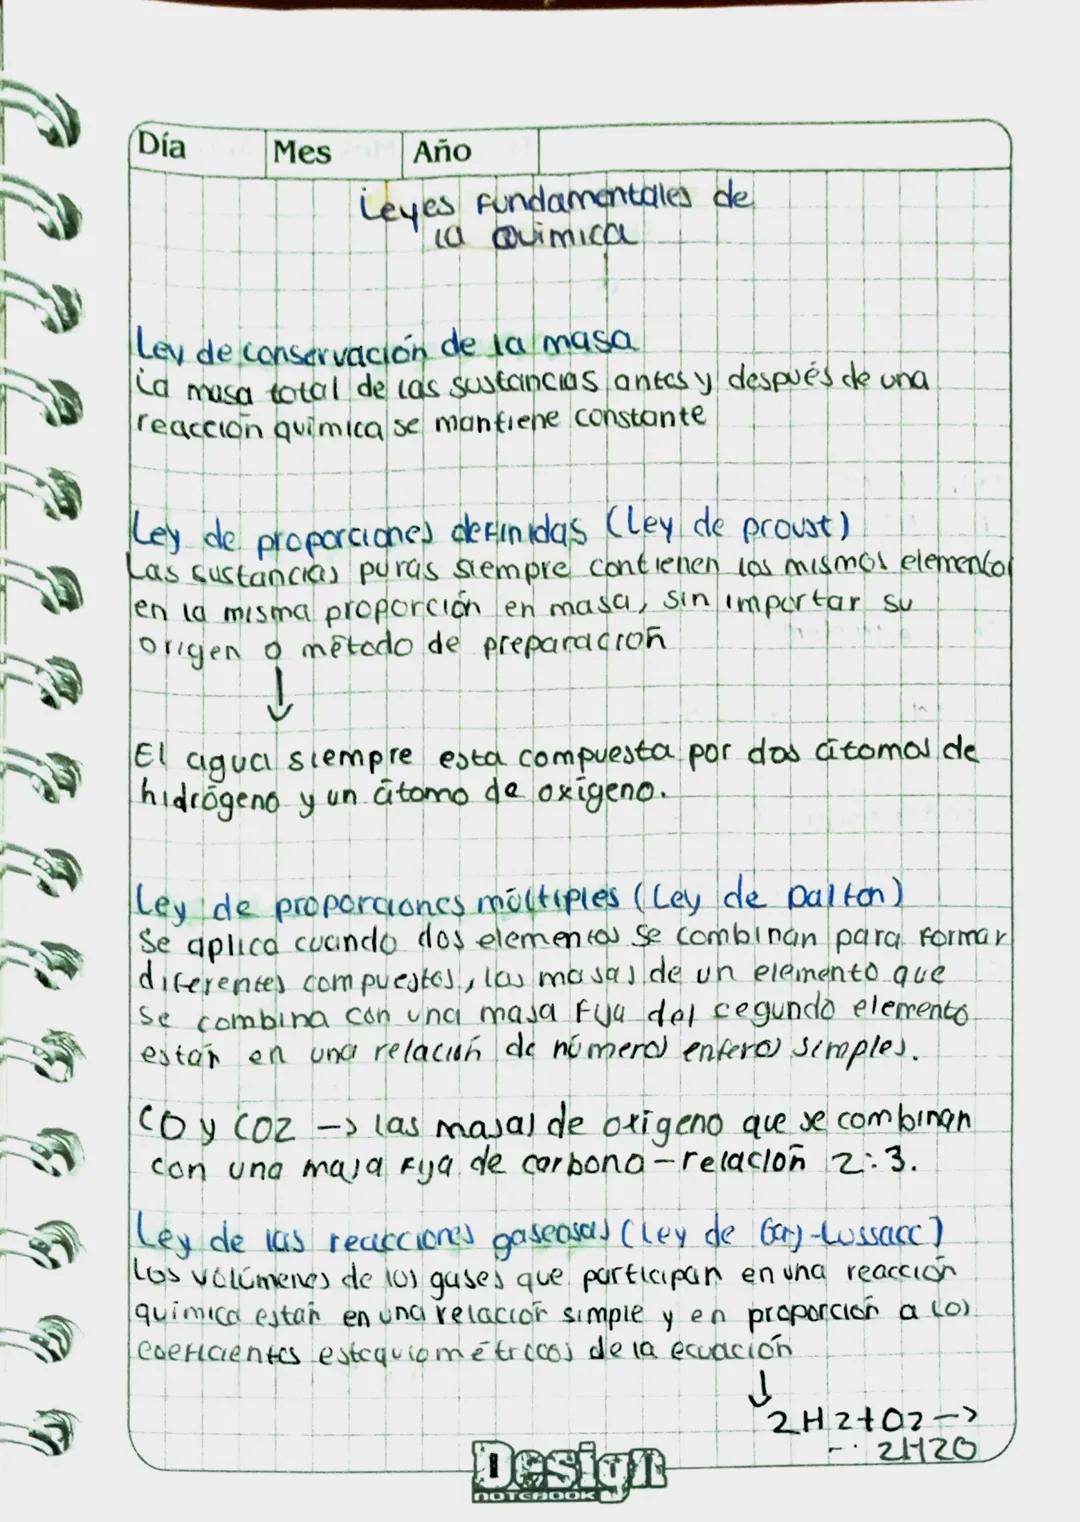 Día Mes Año
Leyes Fundamentales de
la Quimica
Ley de conservación de la masa
La masa total de las sustancias antes y después de una
reacción quimica se mantiene constante
Ley de proporciones definidas (Ley de proust)
Las sustancias puras siempre contienen los mismos elementos
en la misma proporción en masa, sin importar su
origen o método de preparación
↓
El agua siempre esta compuesta por dos átomos de
hidrógeno y un átomo de oxígeno.
Ley de proporciones múltiples (Ley de Dalton)
Se aplica cuando dos elementos se combinan para formar
diferentes compuestos, las masas de un elemento que
se combina con una masa fija del cegundo elemento
están en una relación de números enteros simples.
CO y CO2 -> las masas de oxigeno que se combinan
con una masa fija de carbono - relación 2:3.
Ley de las reacciones gaseosas (Ley de Gay-Lussacc)
Los volúmenes de los gases que participan en una reacción
quimica están en una relación simple y en proporción a los
coeficientes estequiométricos de la ecuación
↓
2H2+O2 ->
2H2O
Design
NOTEBOOK